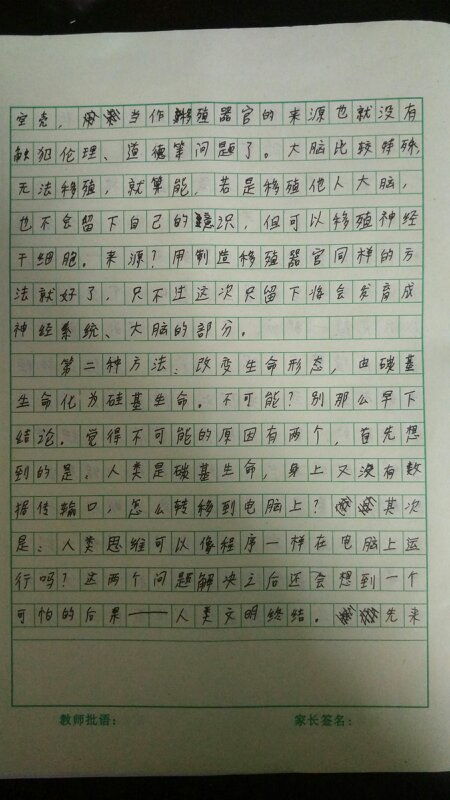 空壳，当作移殖器官的来源也就没有
触犯伦理、道德等问题了。大脑比较特殊，
无法移殖，就算能，若是移殖他人大脑，
也不会留下自己的意识，但可以移殖神经
干细胞。来源？用制造移殖器官同样的方
法就好了，只不过这次只留下将会发育成
神经系统、大脑的部分。
第二种方法：改变生命形态，由碳基
生命化为硅基生命。不可能？别那么早下
结论。觉得不可能的原因有两个，首先想
到的是：人类是碳基生命，身上又没有数
据传输口，怎么转移到电脑上？其次
是：人类思维可以像程序一样在电脑上运
行吗？这两个问题解决之后还会想到一个
可怕的后果——人类文明终结。先来
教师批语： 家长签名：